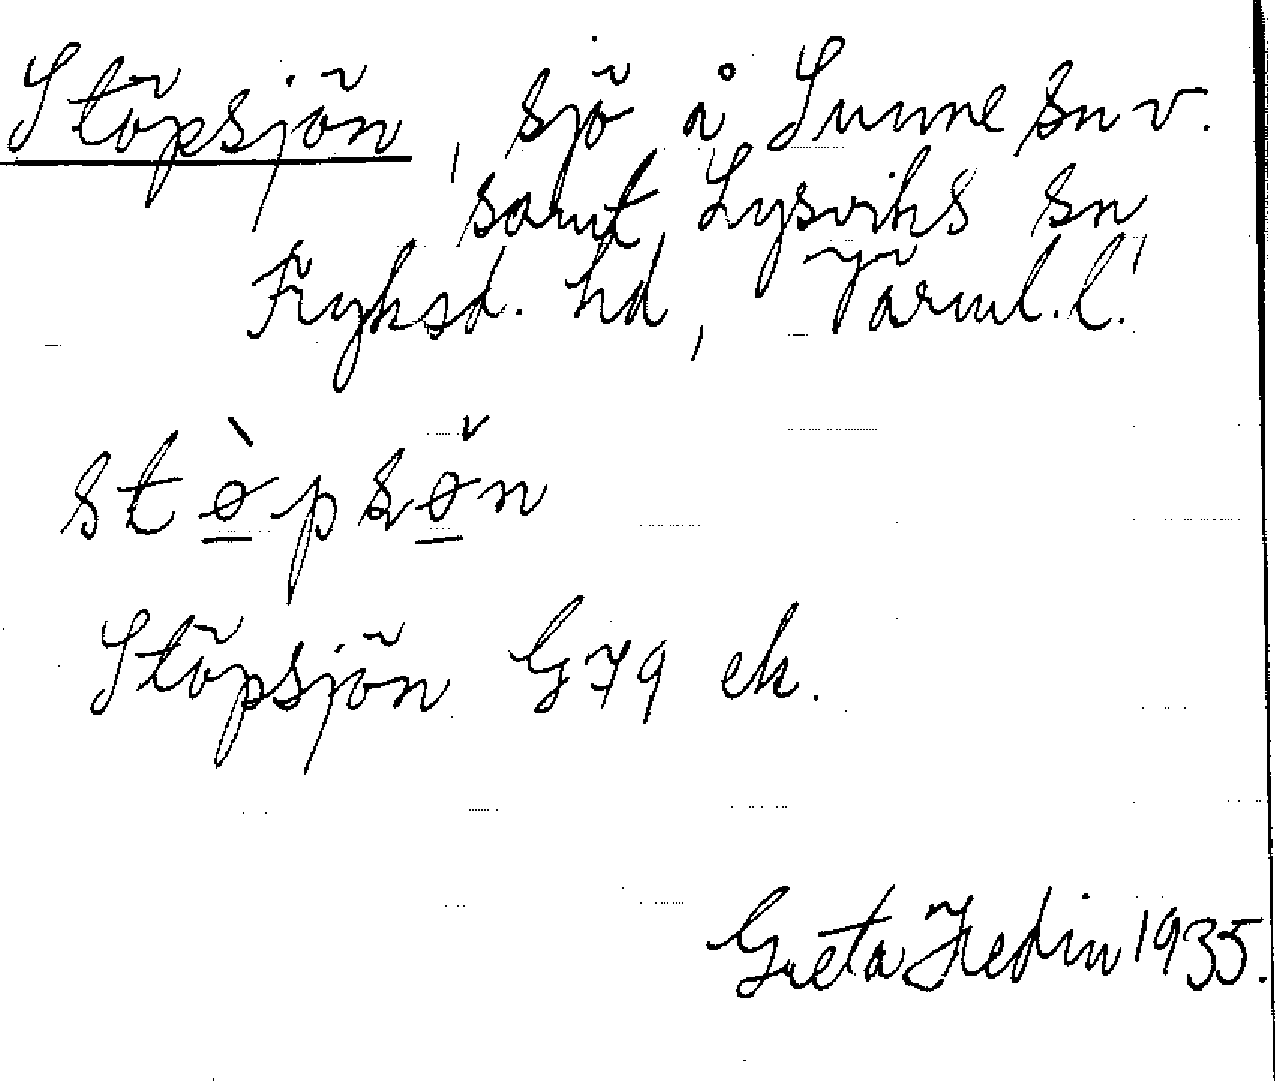 Stöpsjön, sjö å Sunne sn v.
samt Lysviks sn
Fryksd. hd, Värml. l.
stø̀psø̌n
Stöpsjön G79 ek.
Greta Hedin 1935.